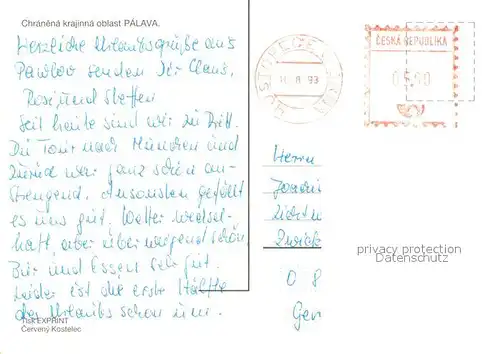 Chráněná krajinná oblast PÁLAVA.
Herzliche Urlaubsgrüße aus
Pawlov senden Dir Claus,
Rosi und Steffen
Seit heute sind wir zu Dritt.
Die Tour nach München und
zurück war ganz schön an-
strengend. Ansonsten gefällt
es uns gut. Wetter wechsel-
haft, aber überwiegend schön.
Bier und Essen sehr gut.
Leider ist die erste Hälfte
des Urlaubs schon um.
Tisk EXPRINT
Červený Kostelec
HUSTOPEČE
8 93
ČESKÁ REPUBLIKA
Herrn
Zwick
privacy protection
Datenschutz
0 8
Ger